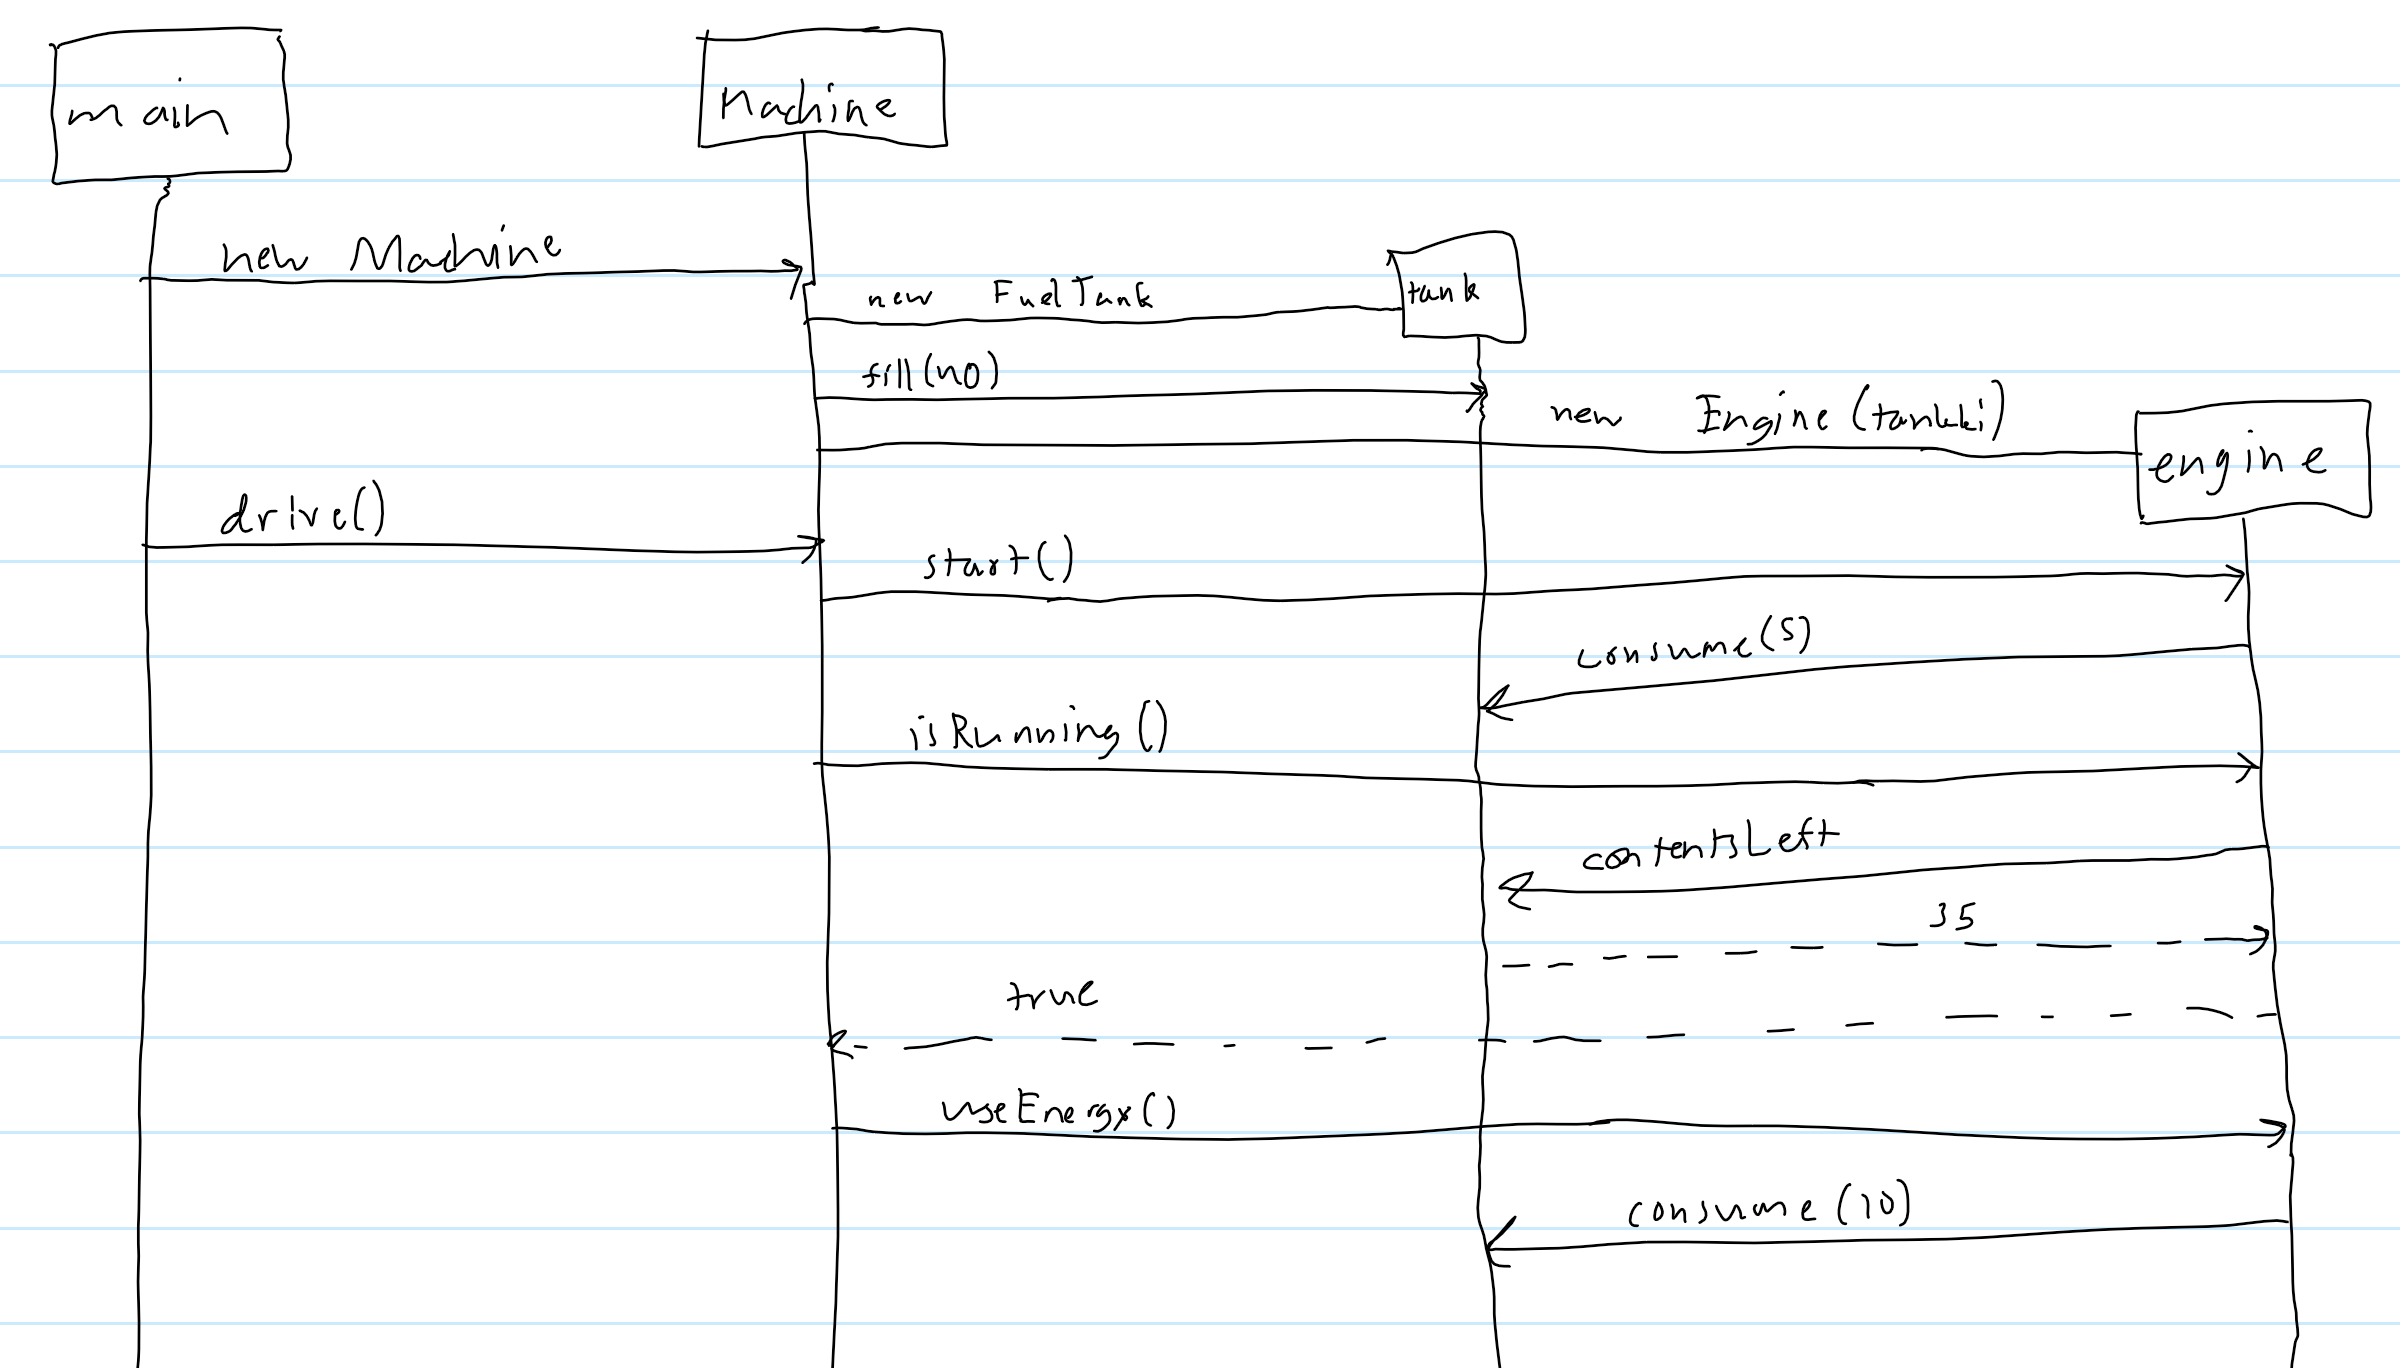 main
Machine
new Machine
new FuelTank
tank
fill(40)
new Engine(tankki)
engine
drive()
start()
consume(5)
isRunning()
contentsLeft
35
true
useEnergy()
consume(10)